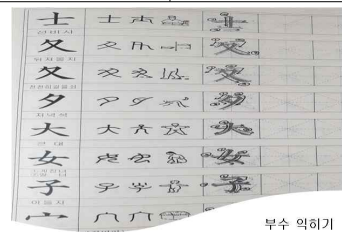 士
선비사
夂
뒤져올치
夊
천천히걸을쇠
夕
저녁석
大
큰대
女
계집녀
子
아들자
宀
부수 익히기